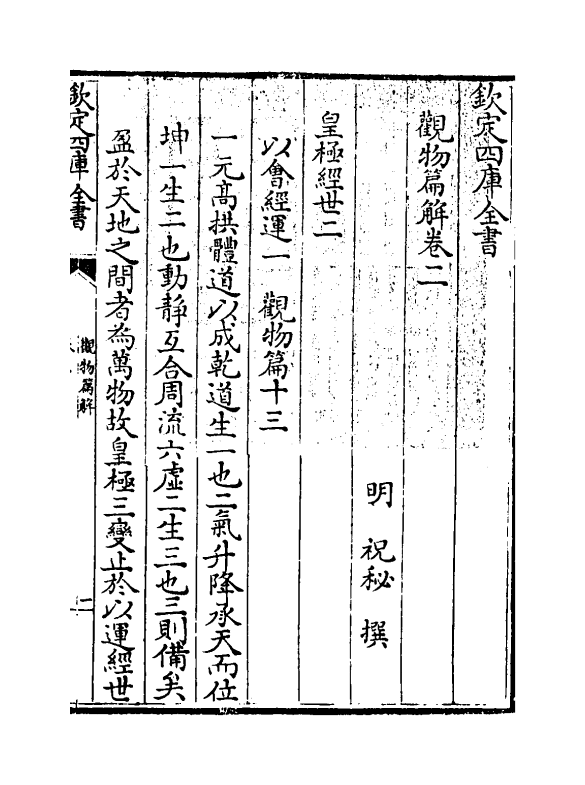 欽定四庫全書
觀物篇解卷二
明 祝秘 撰
皇極經世二
以會經運一 觀物篇十三
一元髙拱體道以成乾道生一也二氣升降承天而位
坤一生二也動靜互合周流六虛二生三也三則備矣
盈於天地之間者為萬物故皇極三變止於以運經世
欽定四庫全書
觀物篇解